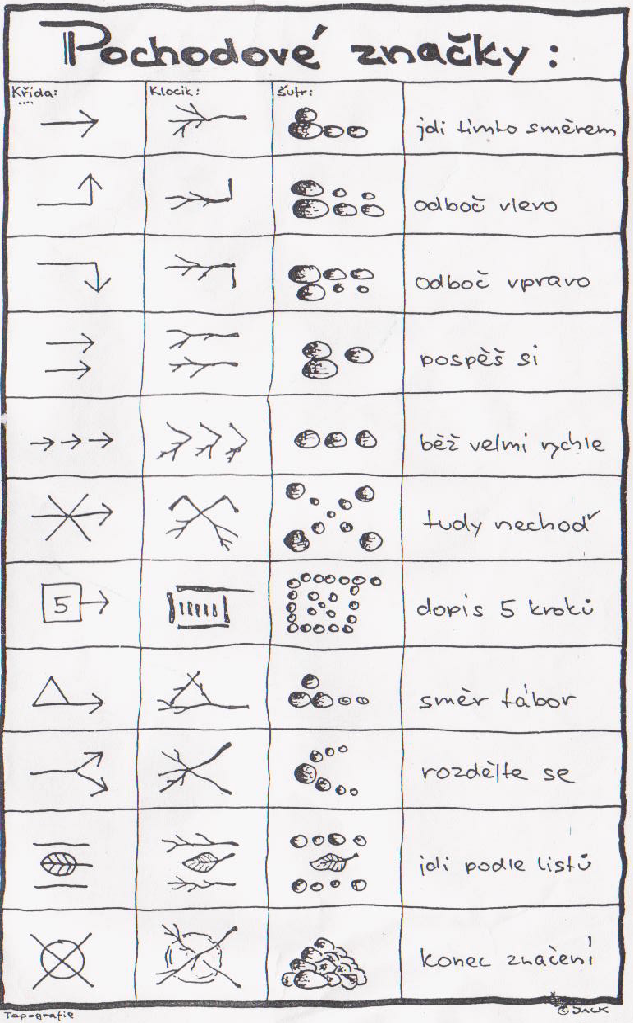 Pochodové značky:
Křída: Klocík: Šutr:
jdi tímto směrem
odboč vlevo
odboč vpravo
pospěš si
běž velmi rychle
tudy nechoď
5 dopis 5 kroků
směr tábor
rozdělte se
jdi podle listů
konec značení
Topografie